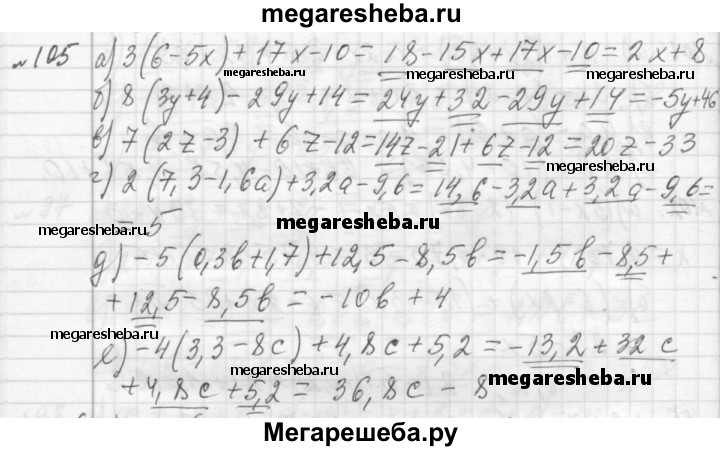 megaresheba.ru
№105 а) 3(6-5x)+17x-10= 18-15x+17x-10= 2x+8
megaresheba.ru megaresheba.ru
б) 8(3y+4)-29y+14=24y+32-29y+14=-5y+46
в) 7(2z-3)+6z-12=14z-21+6z-12=20z-33
megaresheba.ru
г) 2(7,3-1,6a)+3,2a-9,6=14,6-3,2a+3,2a-9,6=
=5
megaresheba.ru megaresheba.ru
д) -5(0,3b+1,7)+12,5-8,5b=-1,5b-8,5+
+12,5-8,5b=-10b+4
megaresheba.ru
е) -4(3,3-8c)+4,8c+5,2=-13,2+32c
megaresheba.ru megaresheba.ru
+4,8c+5,2= 36,8c-8
Мегарешеба.ру